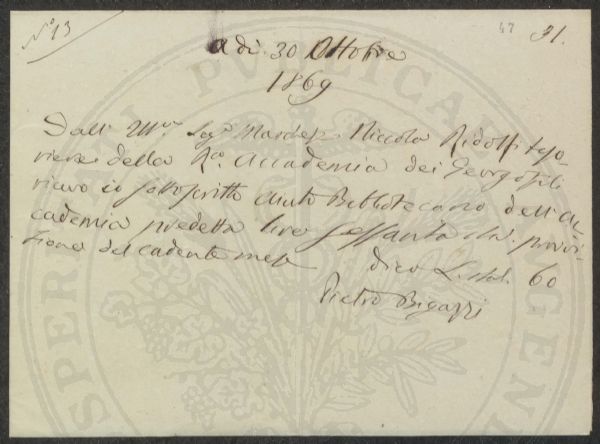 N° 13
47 31.
A dì 30 Ottobre
1869
Dall' Ill.mo Sig.r March.e Niccola Ridolfi teso-
riere della R.a Accademia dei Georgofili
ricevo io sottoscritto Aiuto Bibliotecario dell'Ac-
cademia predetta lire sessanta ital. provvi-
sione del cadente mese
dico L. ital. 60
Pietro Bigazzi